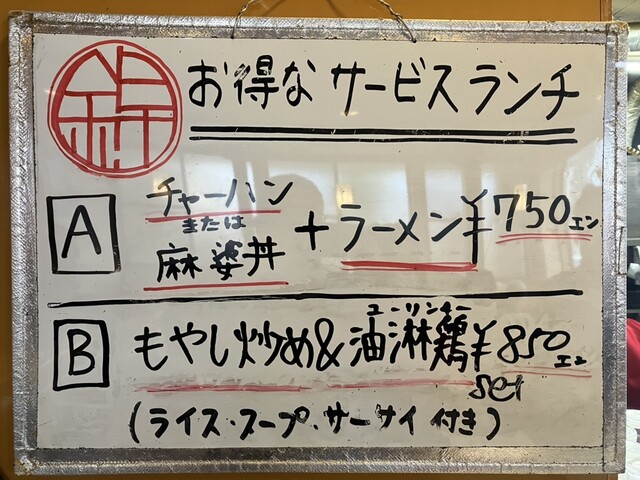 お得な サービスランチ
A チャーハン
または
麻婆丼
+ラーメン ¥750エン
ユーリンチー
B もやし炒め&油淋鶏 ¥850エン
set
(ライス・スープ・サーサイ 付き)